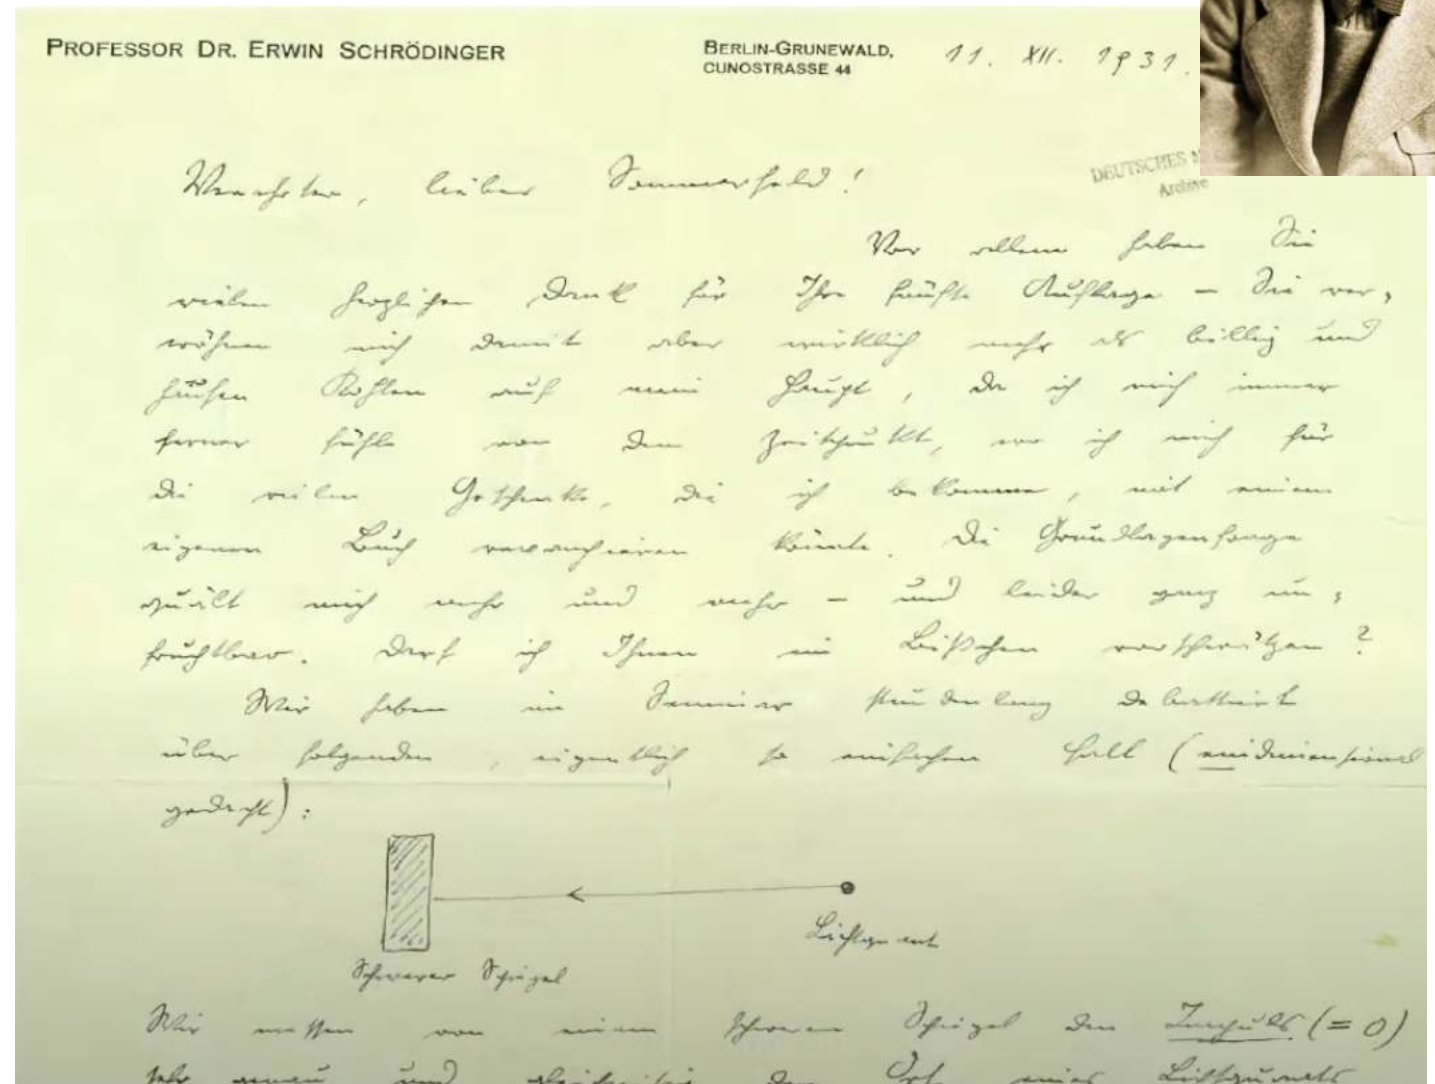 PROFESSOR DR. ERWIN SCHRÖDINGER
BERLIN-GRUNEWALD,
CUNOSTRASSE 44
11. XII. 1931.
DEUTSCHES
Archive
Verehrter, lieber Sommerfeld!
Vor allem haben Sie
vielen herzlichen Dank für Ihre fünfte Auflage – Sie ver-
wöhnen mich damit aber wirklich mehr als billig und
häufen Kohlen auf mein Haupt, da ich mich immer
ferner fühle von dem Zeitpunkt, wo ich mich für
die vielen Geschenke, die ich bekomme, mit einem
eigenen Buch revanchieren könnte. Die Grundlagenfrage
quält mich mehr und mehr – und leider ganz un-
fruchtbar. Darf ich Ihnen ein Bißchen vorschwätzen?
Wir haben im Seminar stundenlang debattiert
über folgenden, eigentlich so einfachen Fall (eindimensional
gedacht):
Lichtquant
Schwerer Spiegel
Wir messen von einem schweren Spiegel den Impuls (= 0)
sehr genau und gleichzeitig den Ort eines Lichtquants